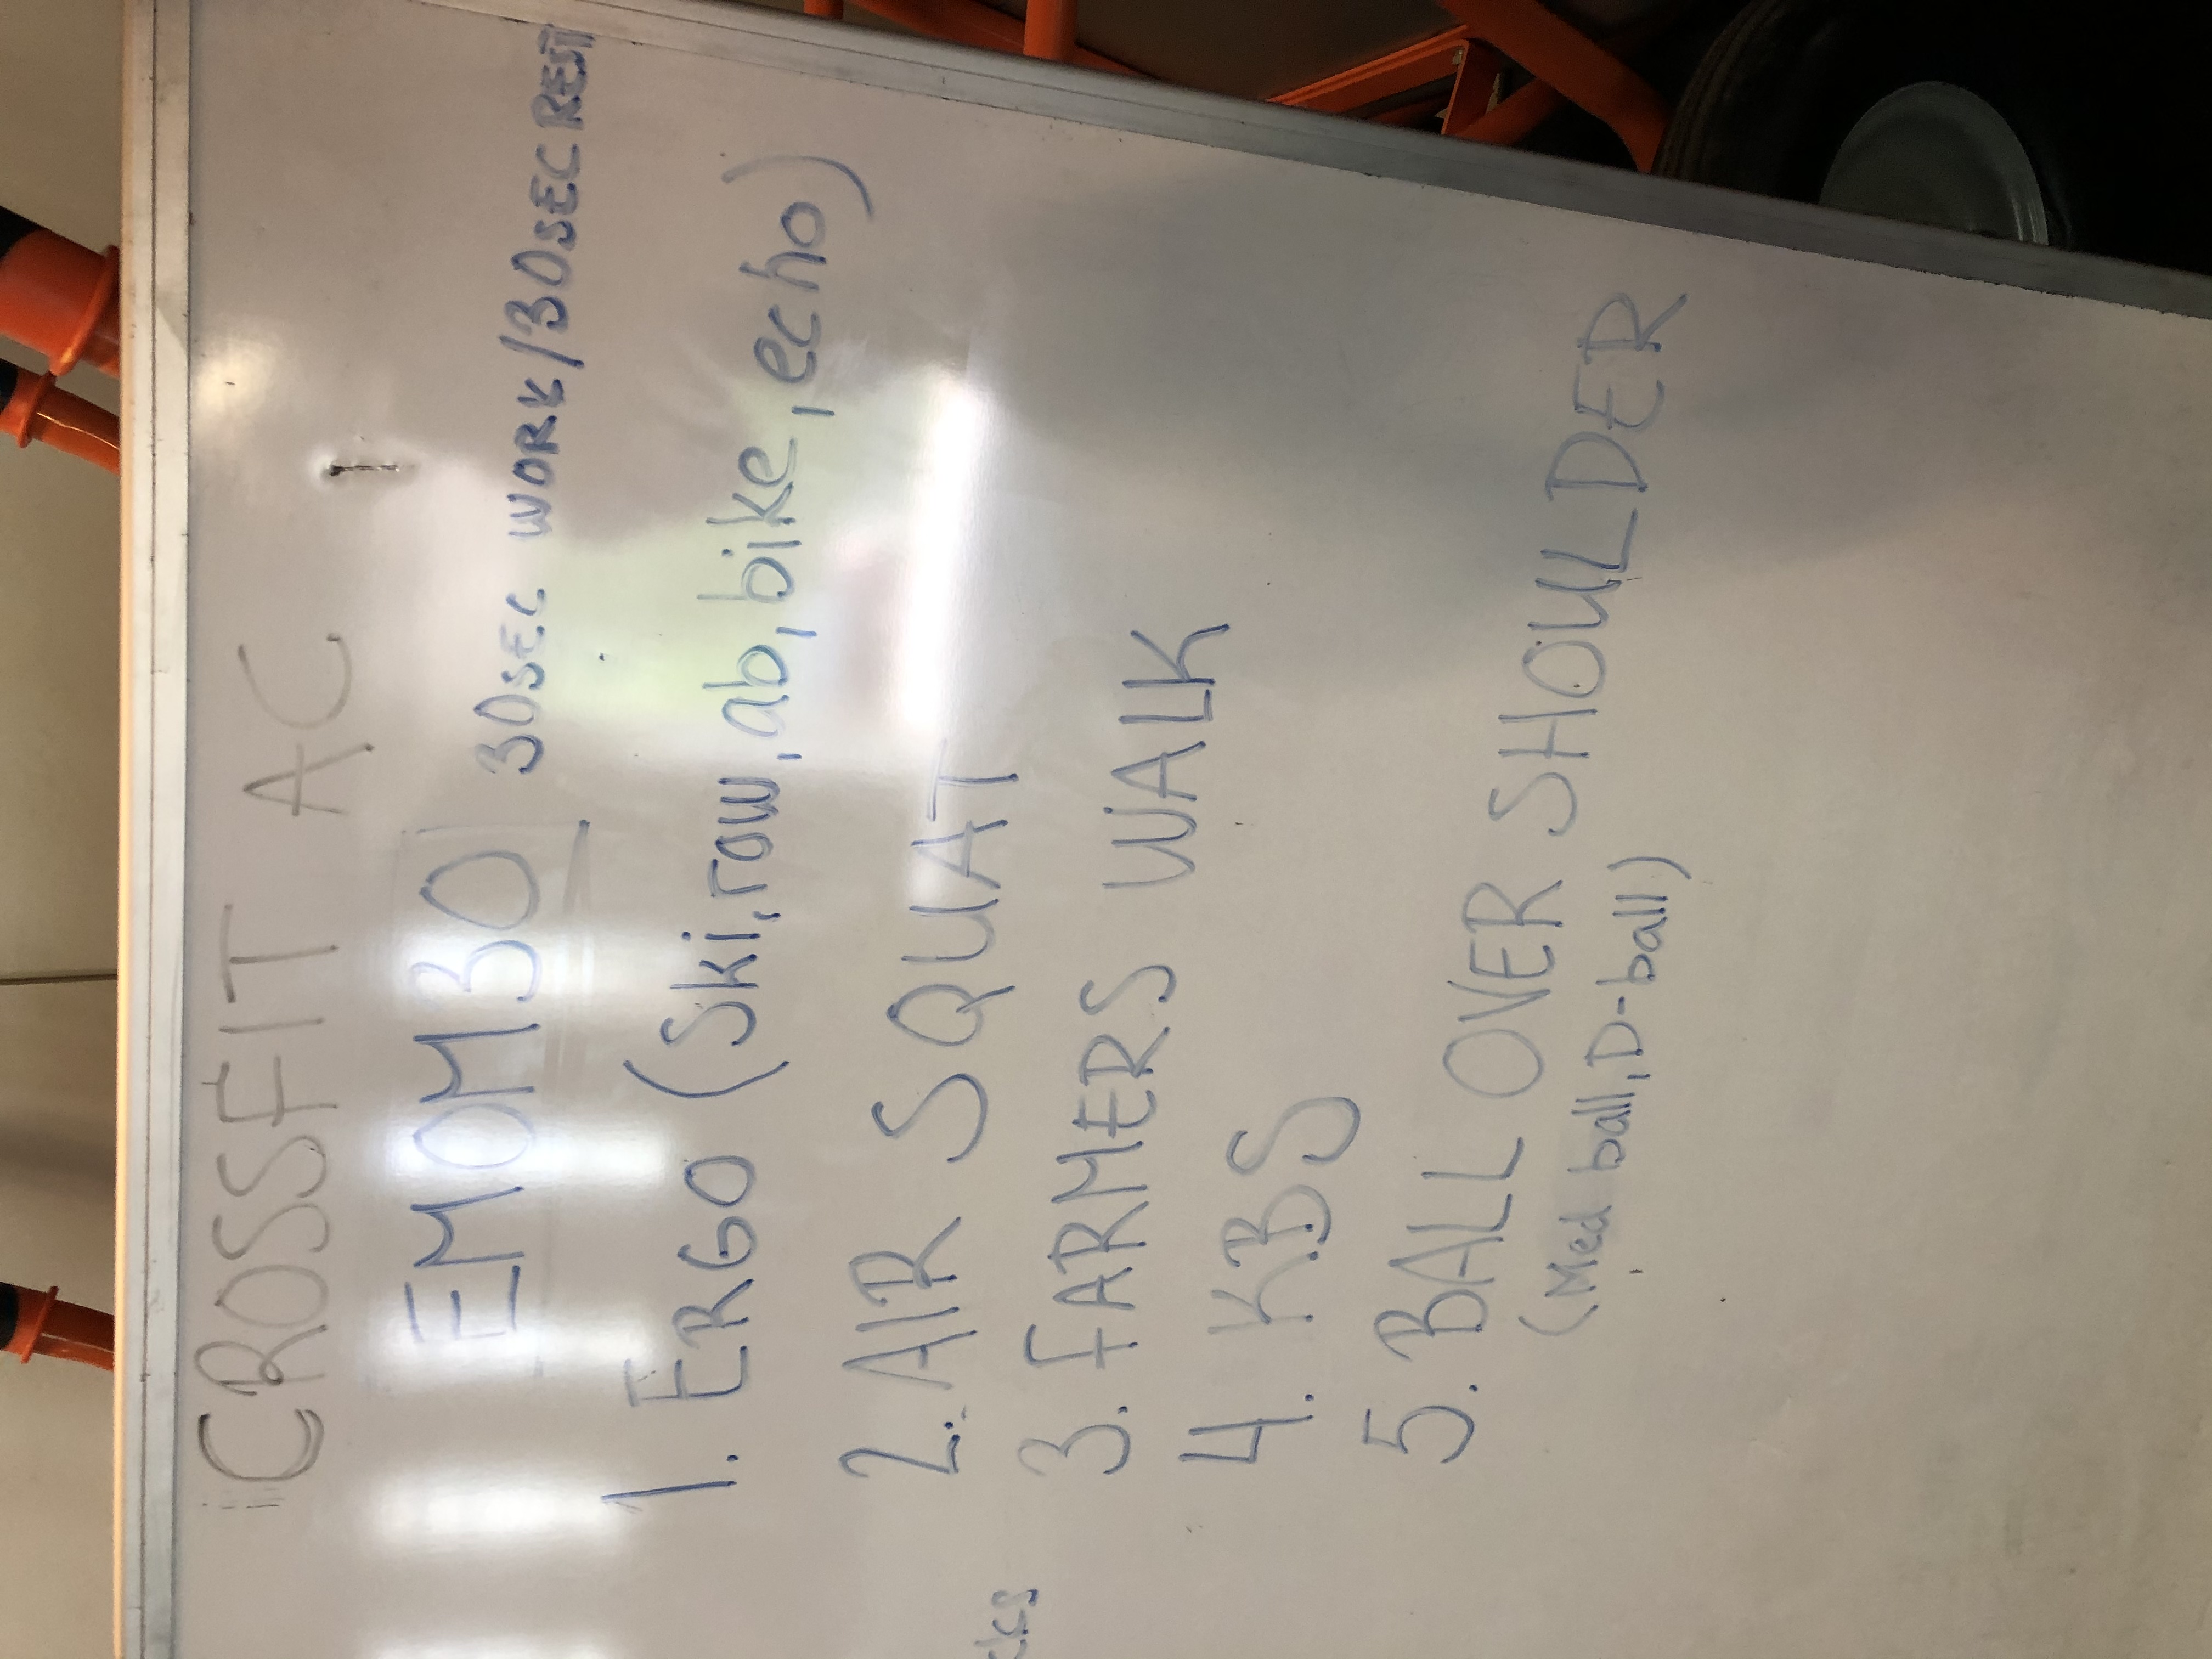 CROSSFIT AC
EMOM30 30SEC WORK/30SEC REST
1. ERGO (Ski, row, ab, bike, echo)
2. AIR SQUAT
3. FARMERS WALK
4. KBS
5. BALL OVER SHOULDER
(Med ball, D-ball)